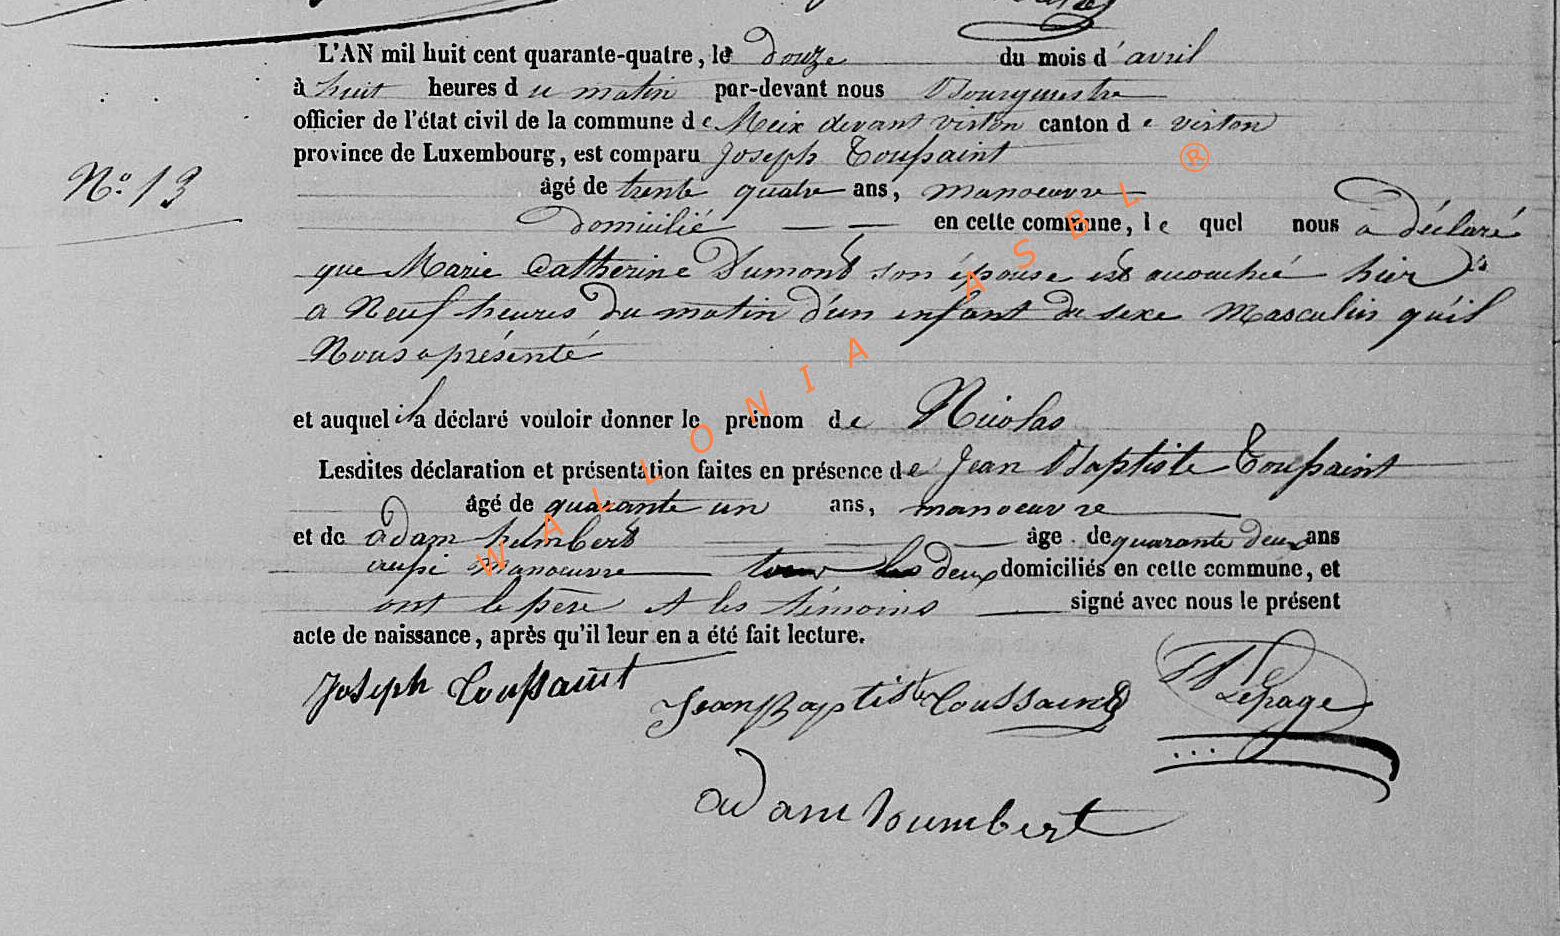 L'AN mil huit cent quarante-quatre, le douze du mois d'avril
à huit heures du matin par-devant nous Bourgmestre
officier de l'état civil de la commune de Meix devant virton canton de virton
province de Luxembourg, est comparu Joseph Toussaint
N.o 13
âgé de trente quatre ans, manoeuvre
domicilié en cette commune, le quel nous a déclaré
que Marie Catherine Dumont son épouse est accouchée hier
a Neuf heures du matin d'un enfant du sexe Masculin qu'il
Nous a présenté
et auquel il a déclaré vouloir donner le prénom de Nicolas
Lesdites déclaration et présentation faites en présence de Jean Baptiste Toussaint
âgé de quarante un ans, manoeuvre
et de adam humbert âge de quarante deux ans
aussi manoeuvre tous les deux domiciliés en cette commune, et
ont le père et les témoins signé avec nous le présent
acte de naissance, après qu'il leur en a été fait lecture.
Joseph Toussaint
Jean Baptiste Toussaint
Lepage
adam humbert
WALLONIA ASBL ®